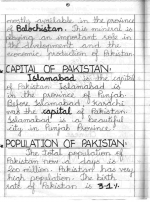 mostly available in the province
of Balochistan. This mineral is
playing an important role in
the development and the
economic production of Pakistan.
CAPITAL OF PAKISTAN:
Islamabad is the capital
of Pakistan. Islamabad is
in the province of Punjab.
Before Islamabad, Karachi
was the capital of Pakistan.
Islamabad is a beautiful
city in Punjab Province.
POPULATION OF PAKISTAN:
The total population of
Pakistan now a days is
200 million. Pakistan has very
high population. The birth
rate of Pakistan is 3.1%